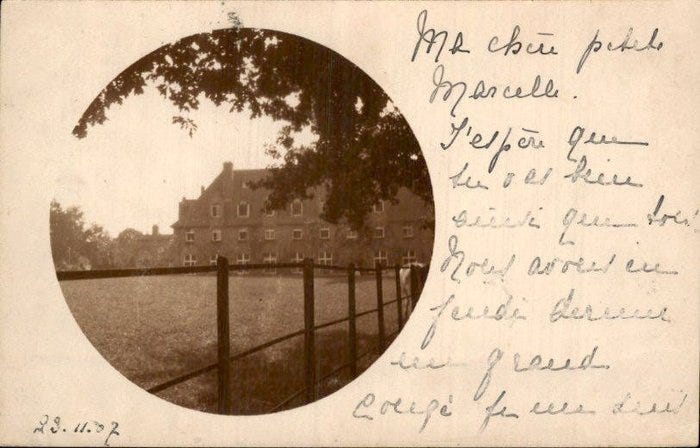 Ma chère petite
Marcelle.
J'espère que
tu vas bien
ainsi que tous
Nous avons eu
jeudi dernier
un grand
congé je me suis
23.11.07